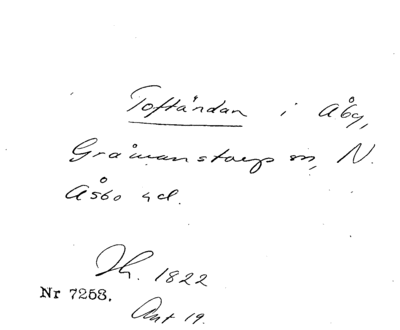 Toftåndan i Åby,
Gråmanstorps sn, N.
Åsbo hd.
Jh. 1822
Nr 7258.
Ant 19.